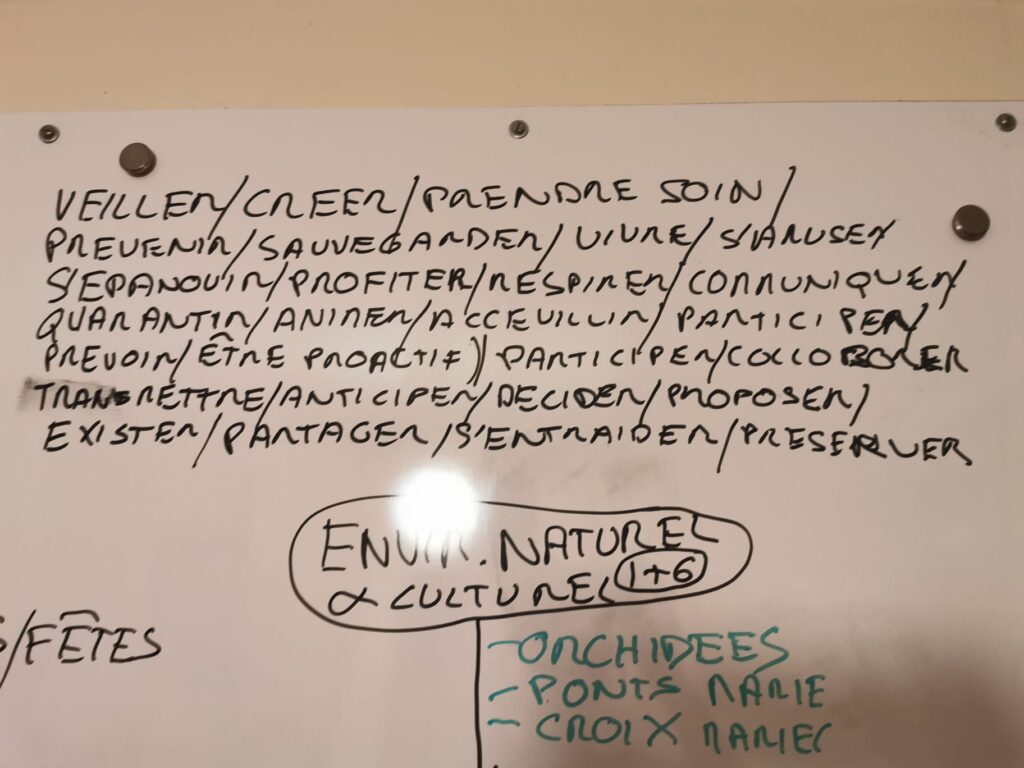 VEILLER/CREER/PRENDRE SOIN/
PREVENIR/SAUVEGARDER/VIVRE/S'AMUSER
S'EPANOUIR/PROFITER/RESPIRER/COMMUNIQUER/
QUARANTIR/ANIMER/ACCEUILLIR/PARTICIPER/
PREVOIR/ÊTRE PROACTIF)/PARTICIPER/COLLOBORER
TRANSMETTRE/ANTICIPER/DECIDER/PROPOSER/
EXISTER/PARTAGER/S'ENTRAIDER/PRESERVER
ENVIR. NATUREL
& CULTUREL 1+6
/FÊTES
-ORCHIDEES
- PONTS MARIE
- CROIX